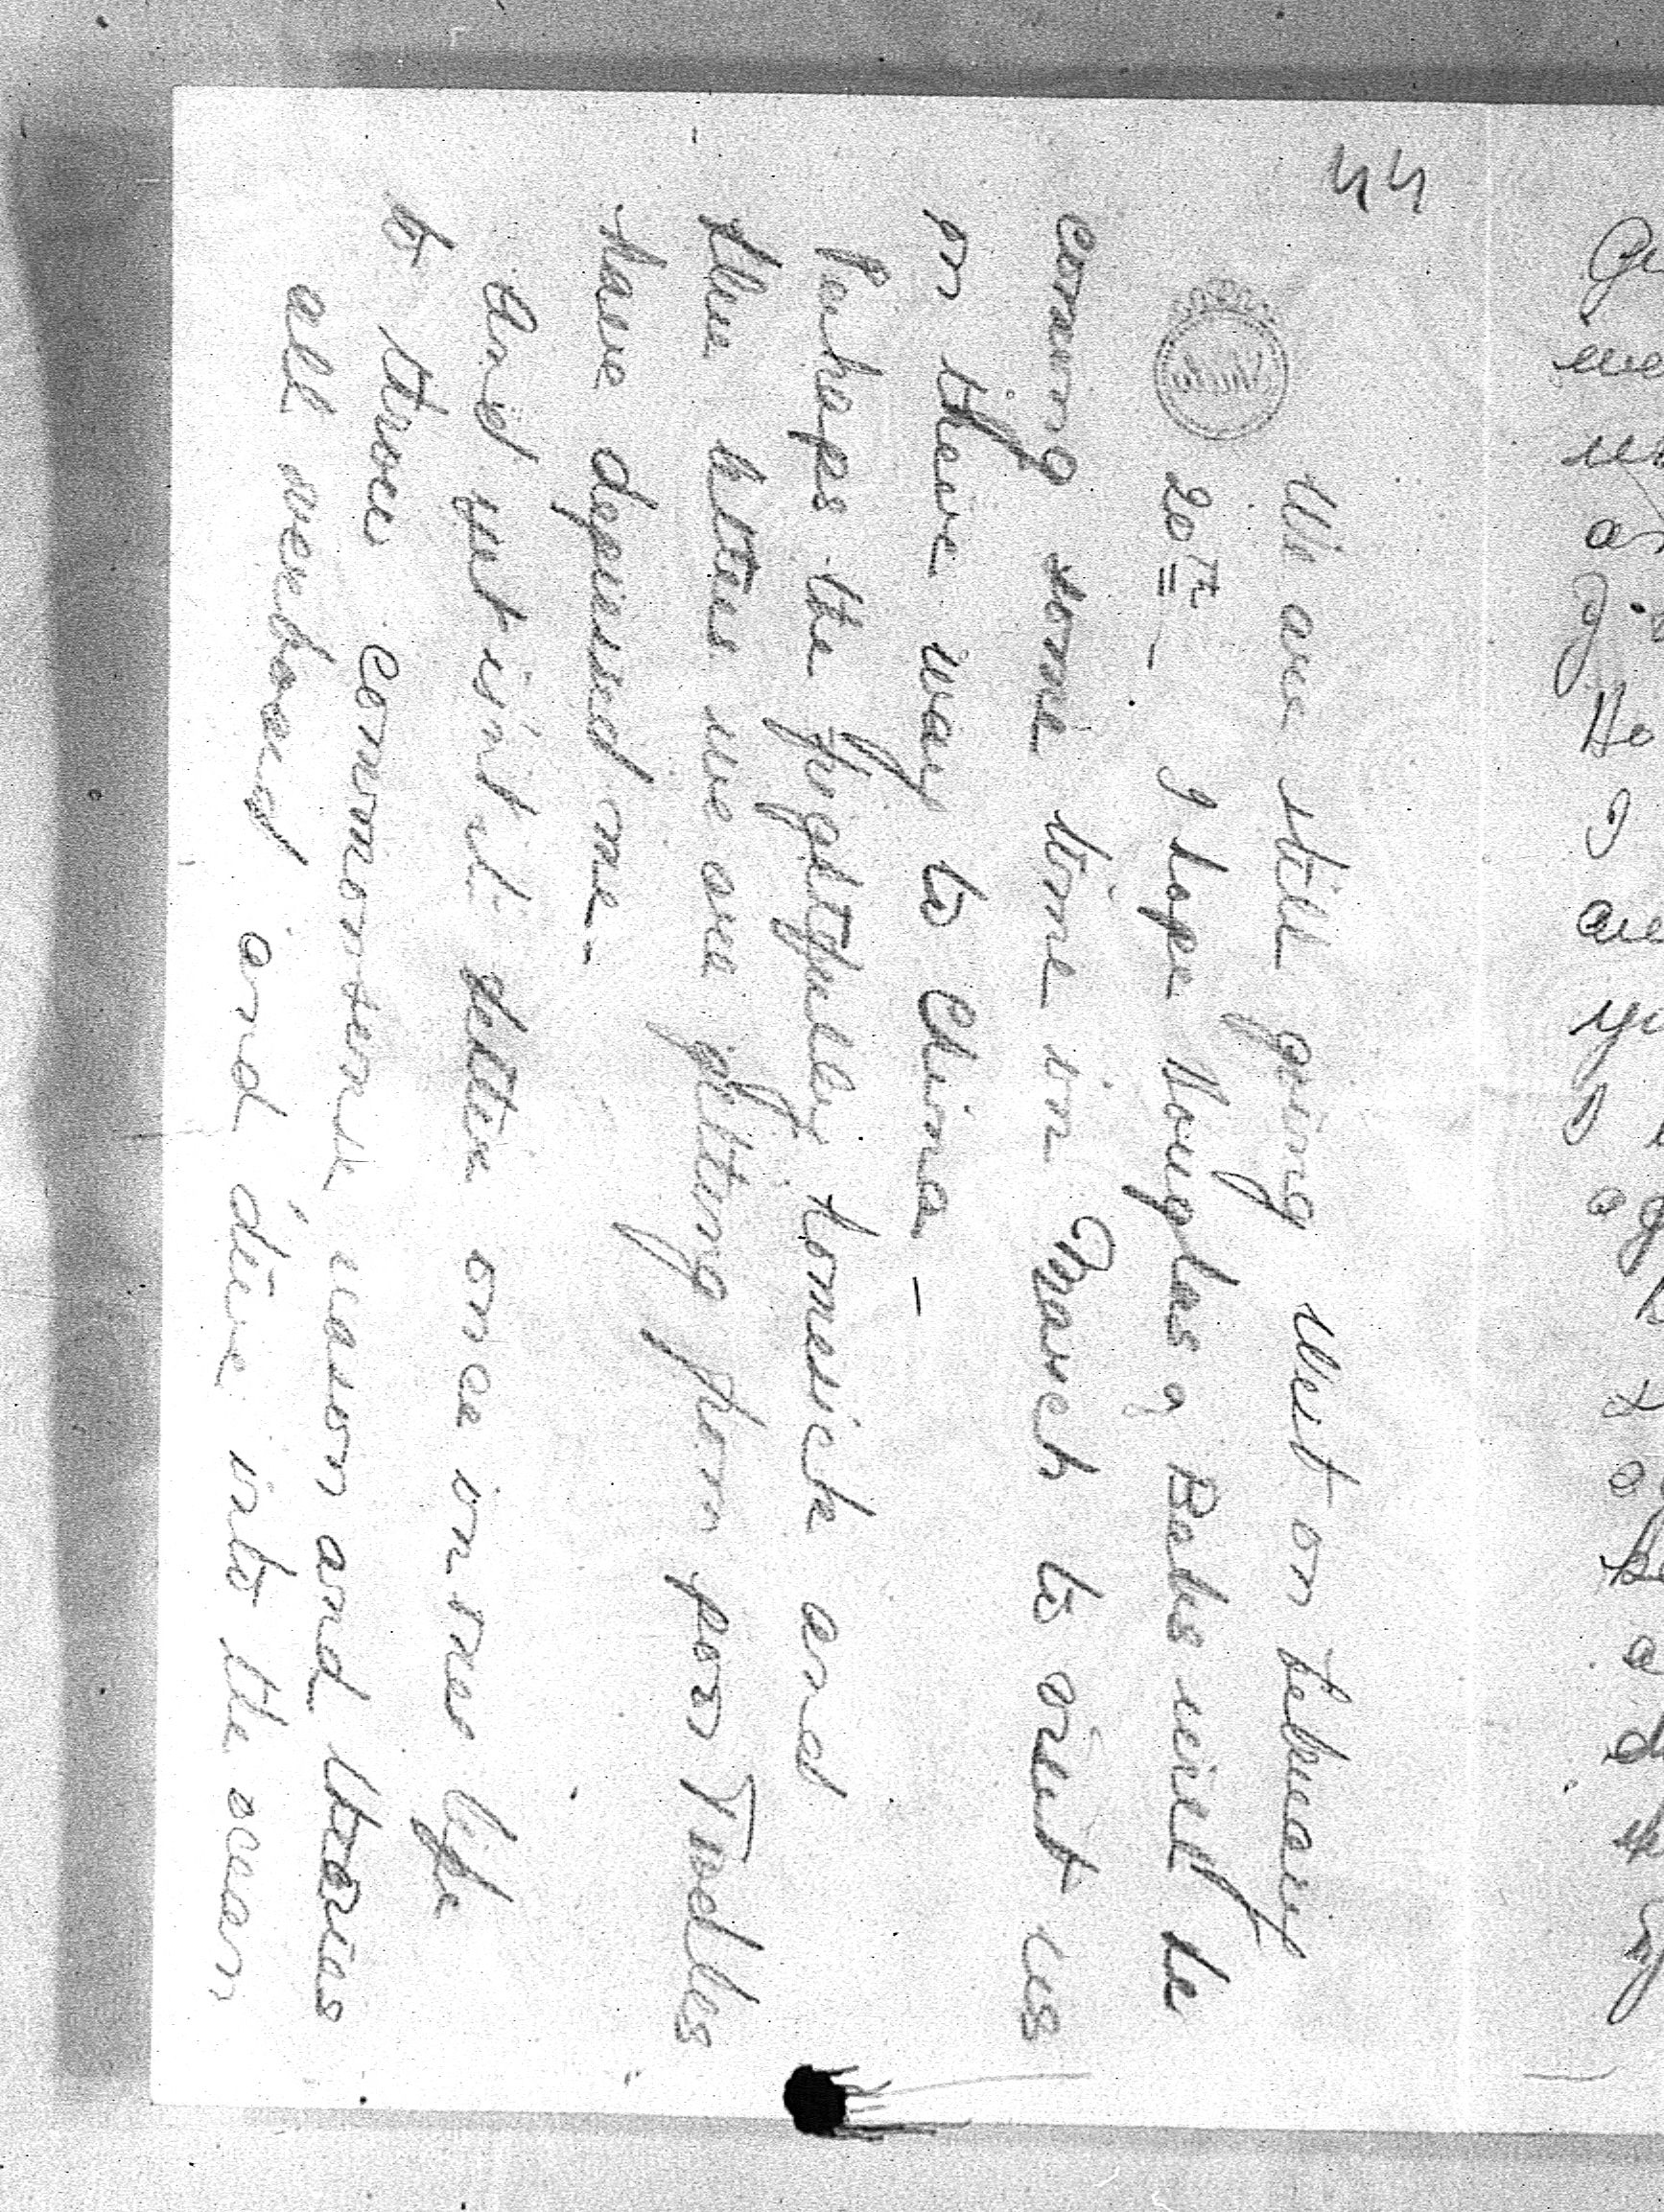 44
We are still going West on February
20th — I hope Douglas & Babs will be
coming some time in March to visit us
on their way to China —
Perhaps the frightfully homesick and
blue letters we are getting from poor Tudles
have depressed me —
And yet isn't it better once in ones life
to throw common sense reason and theories
all overboard and dive into the ocean